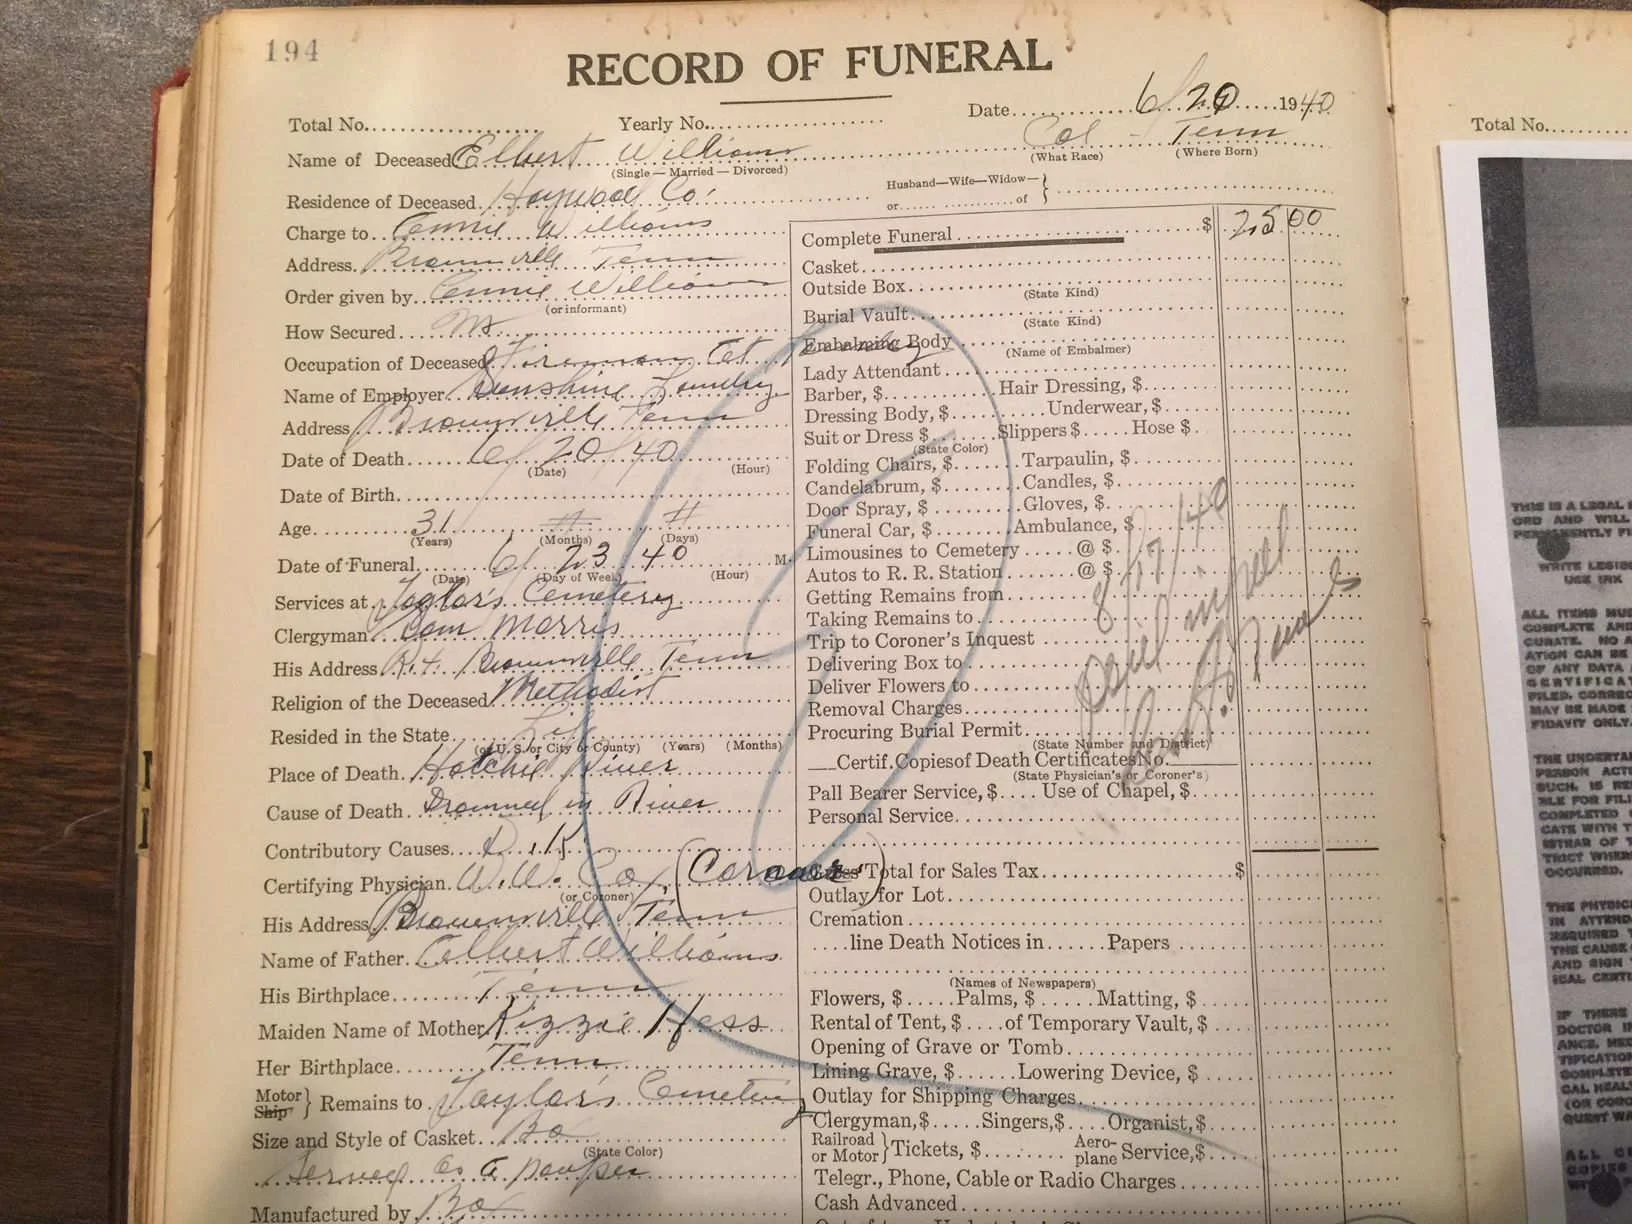 194
RECORD OF FUNERAL
Total No. Yearly No. Date 6/20 1940
Name of Deceased Elbert Williams Col - Tenn
(Single — Married — Divorced) (What Race) (Where Born)
Residence of Deceased Haywood Co. Husband—Wife—Widow— or of
Charge to Annie Williams
Address Brownville Tenn
Order given by Annie Williams
(or informant)
How Secured
Occupation of Deceased Fireman at Laundry
Name of Employer Sunshine Laundry
Address Brownville Tenn
Date of Death 6/20/40
(Date) (Hour)
Date of Birth
Age 31
(Years) (Months) (Days)
Date of Funeral 6/23 40 M.
(Date) (Day of Week) (Hour)
Services at Taylor's Cemetery
Clergyman Sam Morris
His Address Rt. Brownville Tenn
Religion of the Deceased Methodist
Resided in the State Life
(or U. S. or City or County) (Years) (Months)
Place of Death Hatchie River
Cause of Death Drowned in River
Contributory Causes D.K
Certifying Physician W.W. Cox (Coroner)
(or Coroner)
His Address Brownville Tenn
Name of Father Albert Williams
His Birthplace Tenn
Maiden Name of Mother Kizzie Hess
Her Birthplace Tenn
Motor Ship } Remains to Taylor's Cemetery
Size and Style of Casket Bo
(State Color)
Served as a pauper
Manufactured by Bo
Complete Funeral $ 25 00
Casket
Outside Box
(State Kind)
Burial Vault
(State Kind)
Embalming Body
(Name of Embalmer)
Lady Attendant
Barber, $ Hair Dressing, $
Dressing Body, $ Underwear, $
Suit or Dress $ Slippers $ Hose $
(State Color)
Folding Chairs, $ Tarpaulin, $
Candelabrum, $ Candles, $
Door Spray, $ Gloves, $
Funeral Car, $ Ambulance, $
Limousines to Cemetery @ $
Autos to R. R. Station @ $
Getting Remains from
Taking Remains to
Trip to Coroner's Inquest
Delivering Box to
Deliver Flowers to
Removal Charges
Procuring Burial Permit
(State Number and District)
Certif. Copies of Death Certificates No.
(State Physician's or Coroner's)
Pall Bearer Service, $ Use of Chapel, $
Personal Service
8/17/40
Paid in full
Total for Sales Tax $
Outlay for Lot
Cremation
line Death Notices in Papers
(Names of Newspapers)
Flowers, $ Palms, $ Matting, $
Rental of Tent, $ of Temporary Vault, $
Opening of Grave or Tomb
Lining Grave, $ Lowering Device, $
Outlay for Shipping Charges
Clergyman, $ Singers, $ Organist, $
Railroad or Motor } Tickets, $ Aero-plane Service, $
Telegr., Phone, Cable or Radio Charges
Cash Advanced
Total No.
THIS IS A LEGAL
ORD AND WILL
WRITE
USE INK
COMPLETE AND
ATION CAN BE
OF ANY DATA
MAY BE MADE
FIDAVIT ONLY.
PERSON
SUCH, IS
BLE FOR
COMPLETED
CATE WITH
TRICT
OCCURRED.
THE
IN
REQUIRED
THE CAUSE
AND SIGN
ICAL
IF THERE
DOCTOR